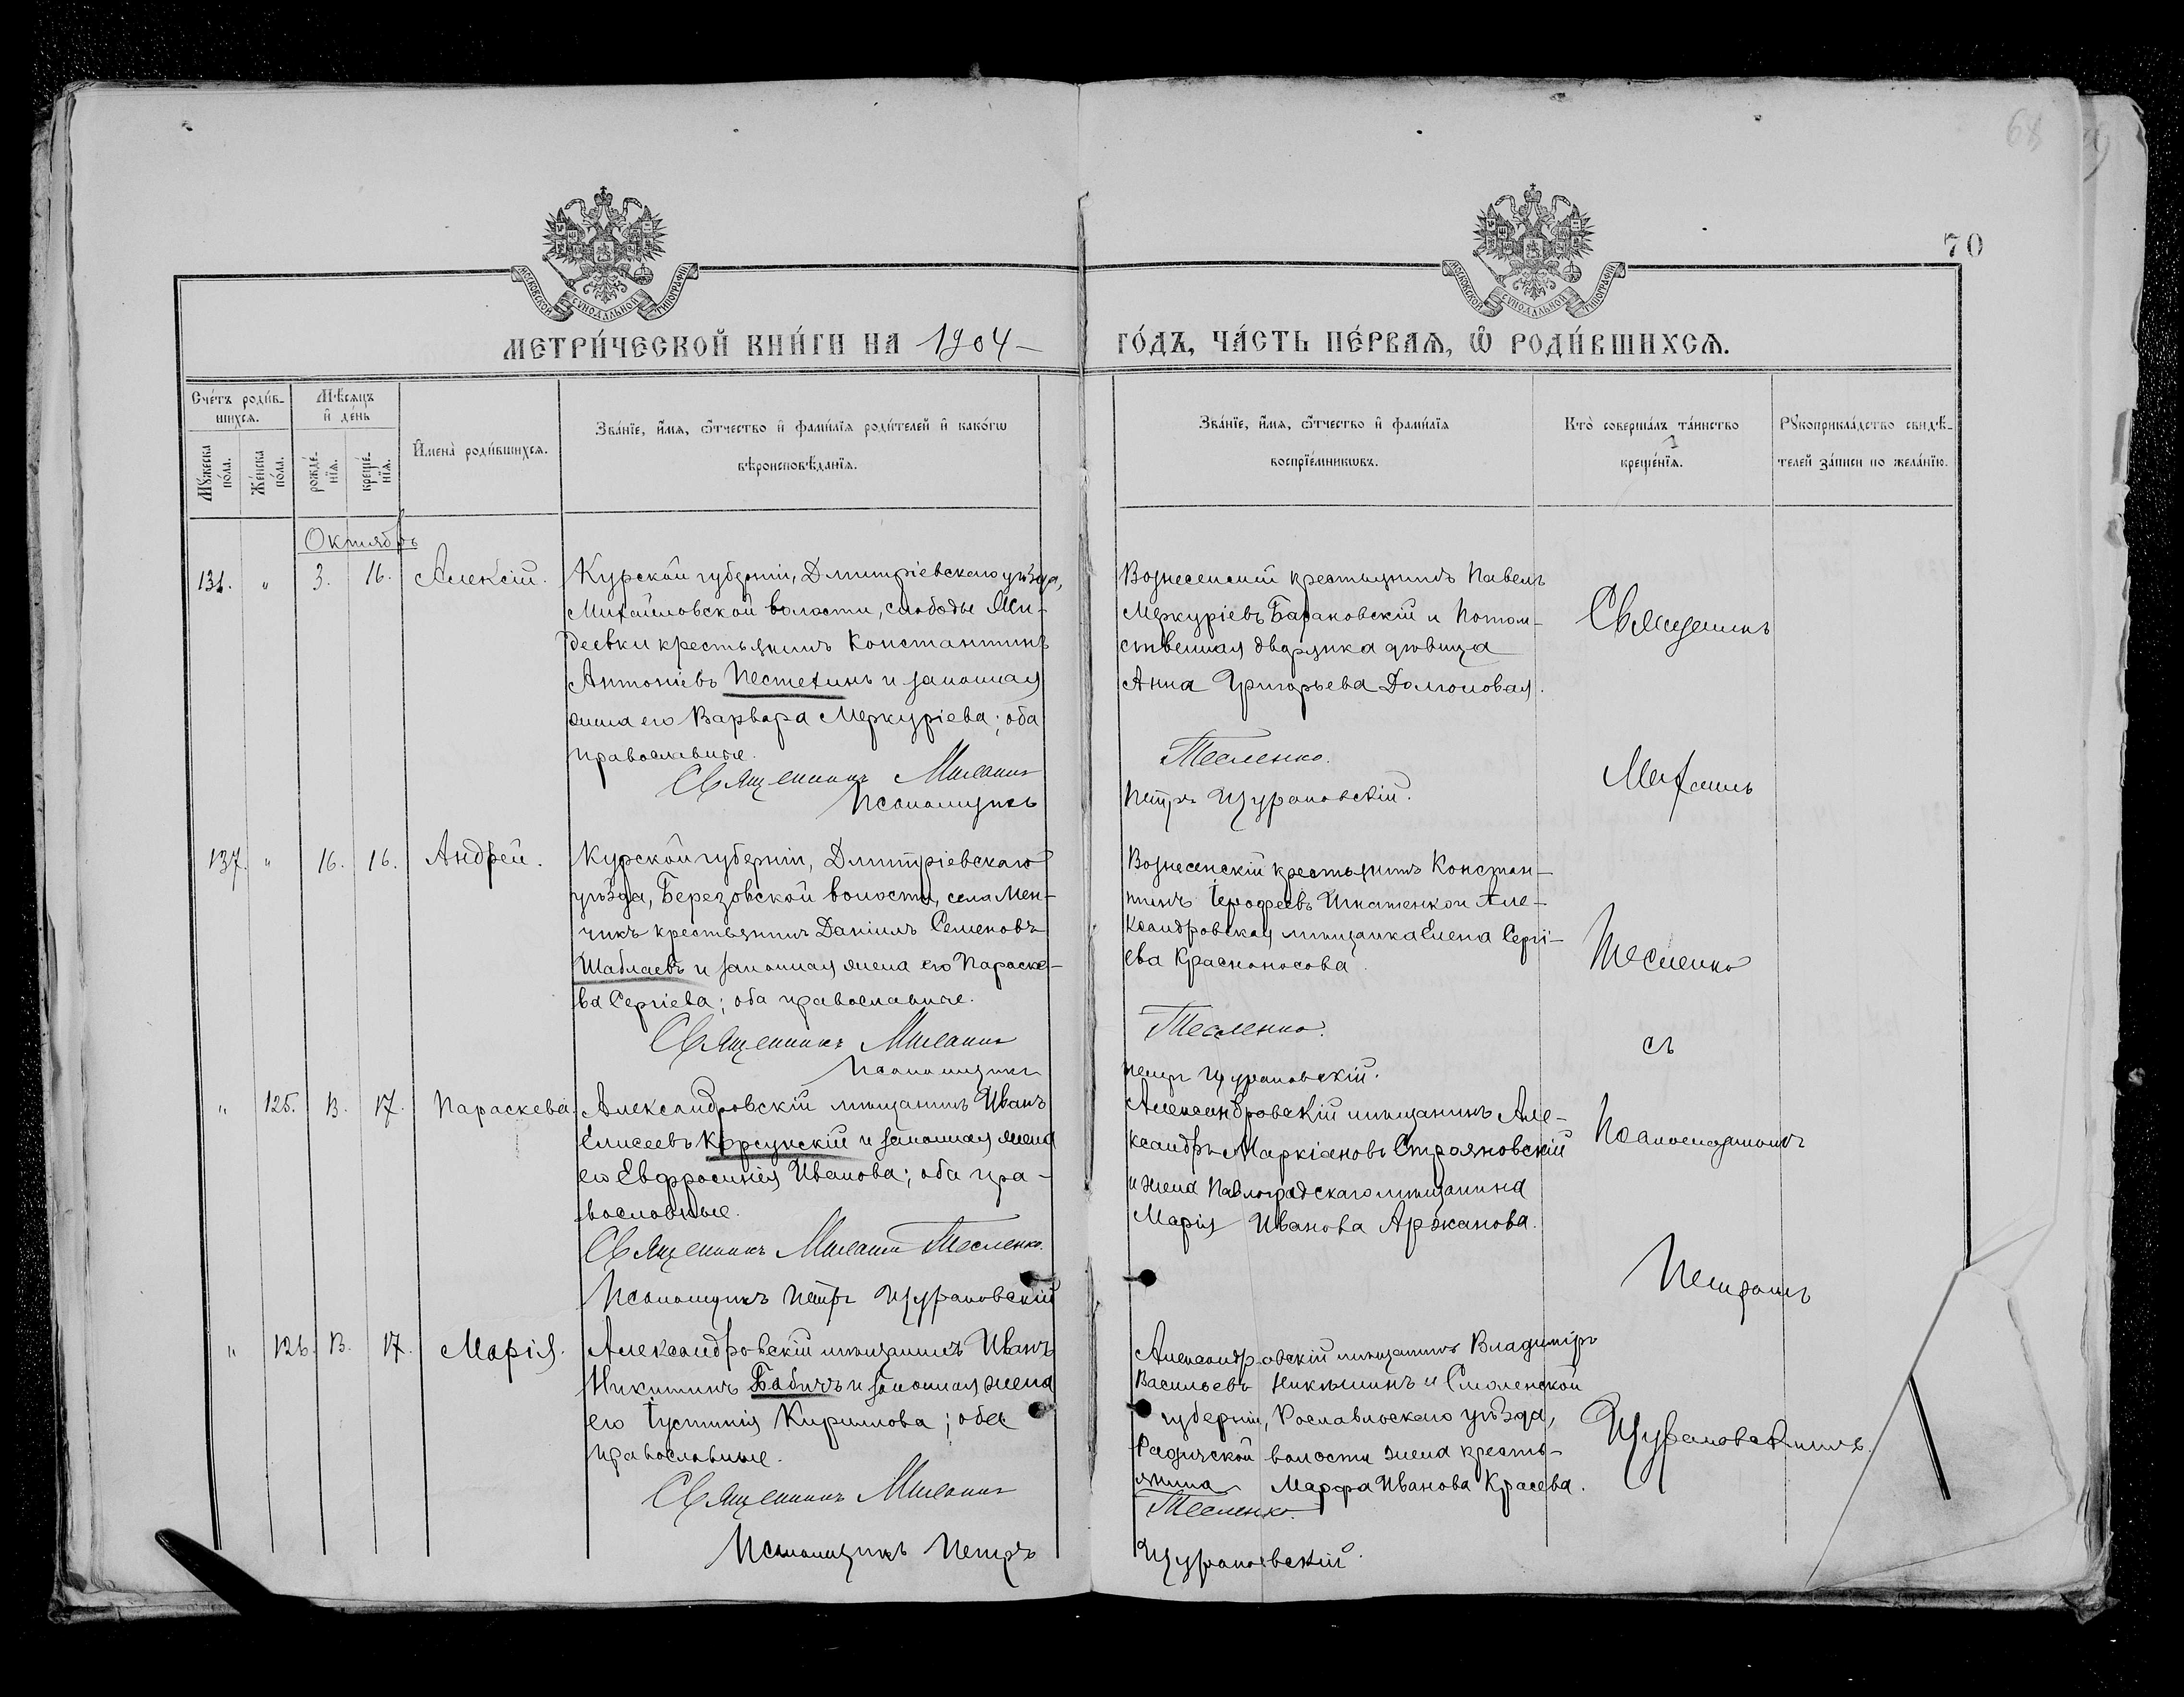 68
70
МОСКОВСКОЙ СѴНОДАЛЬНОЙ ТИПОГРАФІИ
МОСКОВСКОЙ СѴНОДАЛЬНОЙ ТИПОГРАФІИ
МЕТРИ́ЧЕСКОЙ КНИ́ГИ НА 1904 ГО́ДЪ, ЧА́СТЬ ПЕ́РВАѦ, Ѡ҆ РОДИ́ВШИХСѦ.
Сче́тъ роди́в-
шихсѧ.
Мꙋ́жеска по́ла.
Же́нска по́ла.
Мѣ́сѧцъ
и҆ де́нь
рожде́-
нїѧ.
креще́-
нїѧ.
И҆мена̀ роди́вшихсѧ.
Зва́нїе, и҆́мѧ, ѻ҆́тчество и҆ фами́лїѧ роди́телей и҆ како́гѡ
вѣроисповѣ́данїѧ.
Зва́нїе, и҆́мѧ, ѻ҆́тчество и҆ фами́лїѧ
воспрїе́мникѡвъ.
Кто̀ соверша́лъ та́инство
креще́нїѧ.
Рꙋкоприкла́дство свидѣ́-
телей за́писи по жела́нїю.
Октябрь
131. " 3. 16. Алексій.
Курской губерніи, Дмитріевскаго уѣзда,
Михайловской волости, слободы
крестьянинъ Константинъ
Антоніевъ Пестехинъ и законная
жена его Варвара Меркуріева; оба
православные.
Священникъ Михаилъ
Псаломщикъ
Вознесенскій крестьянинъ Павелъ
Меркуріевъ Бараковскій и Потом-
ственная дворянка дѣвица
Анна Григорьева
Тесленко.
Петръ Щурановскій.
Священникъ
Михаилъ
Тесленко
съ
Псаломщикомъ
Петромъ
Щурановскимъ.
137. " 16. 16. Андрей.
Курской губерніи, Дмитріевскаго
уѣзда, Березовской волости, села Мен-
чикъ крестьянинъ Даніилъ Семеновъ
Шаблаевъ и законная жена его Параске-
ва Сергіева; оба православные.
Священникъ Михаилъ
Псаломщикъ
Вознесенскій крестьянинъ Констан-
тинъ Іерофеевъ Игнатенко и Але-
ксандровская мѣщанка Елена Сергі-
ева Красноносова.
Тесленко.
Петръ Щурановскій.
" 125. 13. 17. Параскева.
Александровскій мѣщанинъ Иванъ
Елисеевъ Корсунскій и законная жена
его Евфросинія Иванова; оба пра-
вославные.
Священникъ Михаилъ Тесленко.
Псаломщикъ Петръ Щурановскій
Александровскій мѣщанинъ Але-
ксандръ Маркіановъ Строяновскій
и жена Павлоградскаго мѣщанина
Марія Иванова Аржанова.
" 126. 13. 17. Марія.
Александровскій мѣщанинъ Иванъ
Никитинъ Бабичъ и законная жена
его Іустинія Кириллова; оба
православные.
Священникъ Михаилъ
Псаломщикъ Петръ
Александровскій мѣщанинъ Владиміръ
Васильевъ и Смоленской
губерніи, Рославльскаго уѣзда,
волости жена кресть-
янина Марфа Иванова Красева.
Тесленко.
Щурановскій.